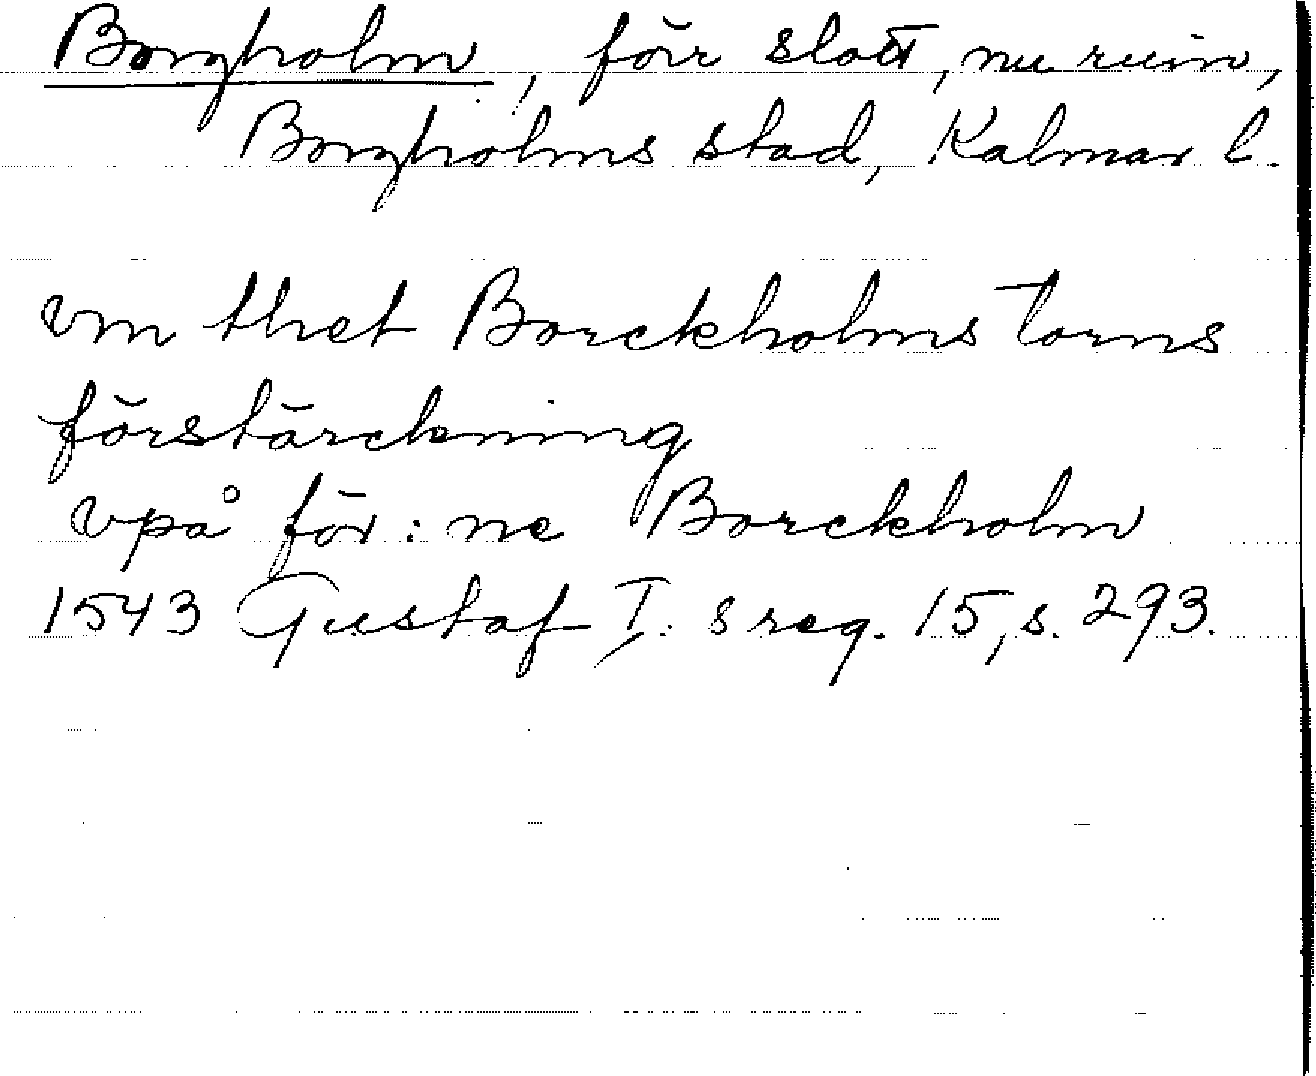 Borgholm, förr slott, nu ruin,
Borgholms stad, Kalmar l.
vm thet Borckholms torns
förstärckning
vpå för:ne Borckholm
1543 Gustaf I:s reg. 15, s. 293.